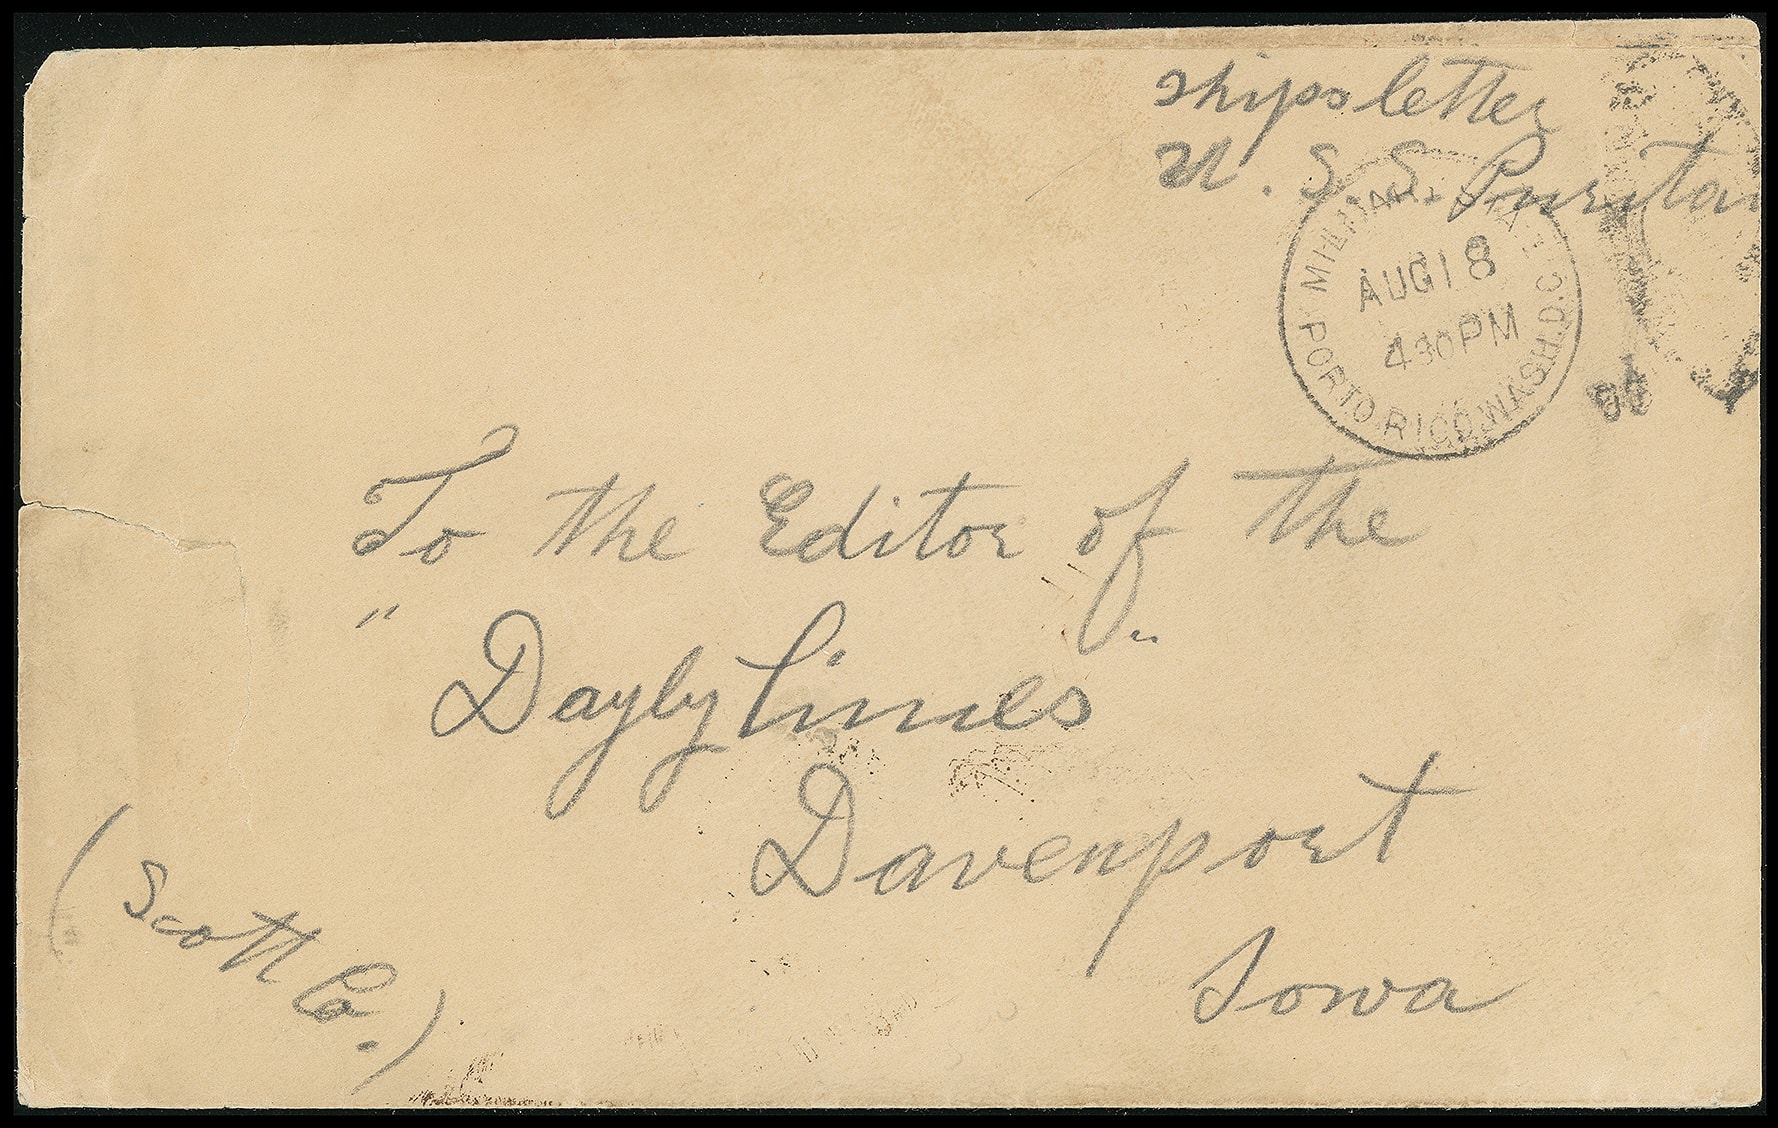 ships letter
U. S. S. Purita
MILITARY STA. 1
AUG 18
430PM
PORTO RICO, WASH. D.C.
To the Editor of the
"Dayly times"
Davenport
Iowa
(Scott Co.)